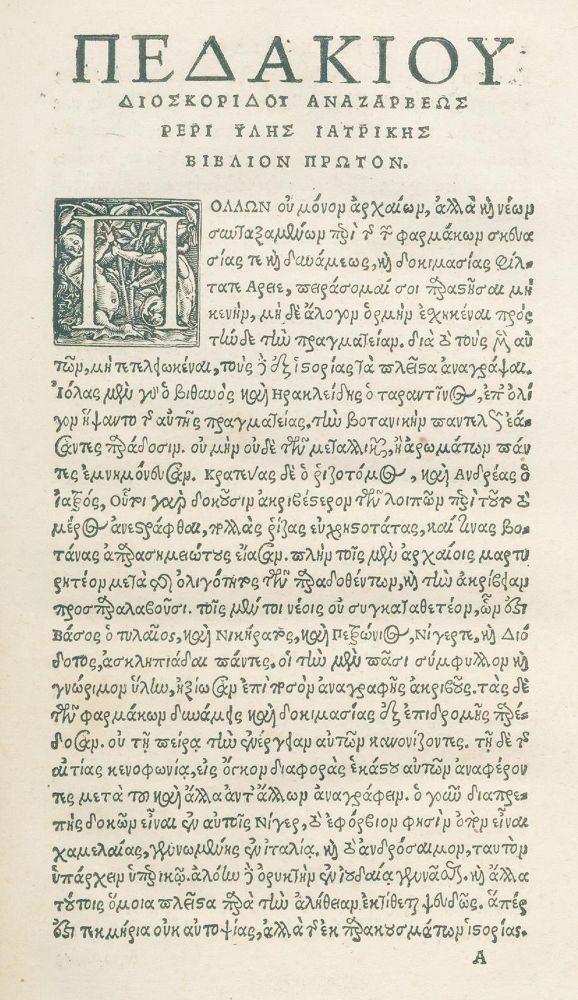 ΠΕΔΑΚΙΟΥ
ΔΙΟΣΚΟΡΙΔΟΥ ΑΝΑΖΑΡΒΕΩΣ
ΡΕΡΙ ΥΛΗΣ ΙΑΤΡΙΚΗΣ
ΒΙΒΛΙΟΝ ΠΡΩΤΟΝ.
ΠΟΛΛΩΝ οὐ μόνομ ἀρχαίωμ, ἀλλὰ καὶ νέωμ
συνταξαμένωμ περὶ τ τ φαρμάκωμ σκευα
σίας τε καὶ δυνάμεως, καὶ δοκιμασίας Φίλ
τατε Αρειε, πειράσομαί σοι παραστῆσαι μὴ
κενὴμ, μὴ δὲ ἄλογομ ὁρμὴμ ἐσχηκέναι πρὸς
τὼ δε τὼ πραγματείαμ. διὰ τοὺς αυ
τῶμ, μὴ τετελφωκέναι, τοὺς ἐξ ἱστορίας τὰ πλεῖστα ἀναγράψαι.
Ἰόλας μὲν ὁ Βιθυνὸς καὶ Ηρακλείδης ὁ ταραντῖνος, ἐπ' ὀλί
γομ ἥψαντο τ αὐτῆς πραγματείας. τὼ βοτανικὴμ παντελῶς ἐά
σαντες παράδοσιμ. οὐ μὴμ οὐδὲ τῶν μεταλλικῶν, ἢ ἀρωμάτωμ πάν
τες ἐμνημόνευσαμ. Κρατευας δὲ ὁ ῥιζοτόμος, καὶ Ανδρέας ὁ
ἰατρὸς, Οὗτοι γὰρ δοκοῦσιμ ἀκριβέστερομ τῶν λοιπῶμ περὶ τοῦτο τὸ
μέρος ἀνεστράφθαι, πολλὰς ῥίζας εὐχρηστοτάτας, καί τινας βο
τάνας ἀπαρασημειώτους εἴασαμ. πλὴμ τοῖς μὲν ἀρχαίοις μαρτυ
ρητέομ μετὰ τῆς ὀλιγότητος τῶν παραδοθέντωμ, καὶ τὼ ἀκρίβειαμ
προσπαραλαβοῦσι. τοῖς μέν τοι νέοις οὐ συγκαταθετέομ, ὧμ ἐστι
Βάσος ὁ τυλαῖος, καὶ Νικήρατος, καὶ Πετρώνιος, Νίγερτε, καὶ Διό
δοτος, ἀσκληπιάδαι πάντες. οἱ τὼ μὲν πᾶσι σύμφυλλομ καὶ
γνώριμομ ὕλω, ἠξίωσαμ ἐπὶ ποσὸμ ἀναγραφῆς ἀκριβοῦς. τὰς δὲ
τῶν φαρμάκωμ δυνάμεις καὶ δοκιμασίας ἐξ ἐπιδρομῆς παρέ
δοσαμ. οὐ τῇ πείρᾳ τὼ ἐνέργειαμ αὐτῶμ κανονίζοντες. τῇ δὲ τ
αἰτίας κενοφωνίᾳ, εἰς ὄγκομ διαφορὰς ἑκάστου αὐτῶμ ἀναφέρον
τες μετὰ τοῦ καὶ ἄλλα ἀντ' ἄλλωμ ἀναγράφειμ. ὁ γοῦν διαπρε
πὴς δοκῶμ εἶναι ἐν αὐτοῖς Νίγερ, τὸ εὐφόρβιομ φησὶμ ὀπὸμ εἶναι
χαμελαίας, γεννωμένης ἐν ἰταλίᾳ. καὶ τὸ ἀνδρόσαιμομ, ταυτὸμ
ὑπάρχειμ ὑπερικῷ. ἀλόην ὀρυκτὴμ ἐν ἰουδαίᾳ γεννᾶσθαι. καὶ ἄλλα
τούτοις ὅμοια πλεῖστα παρὰ τὼ ἀλήθειαμ ἐκτίθεται ψευδῶς. ἅπερ
ἐστὶ τεκμήρια οὐκ αὐτοψίας, ἀλλὰ τ ἐκ παρακουσμάτωμ ἱστορίας.
A